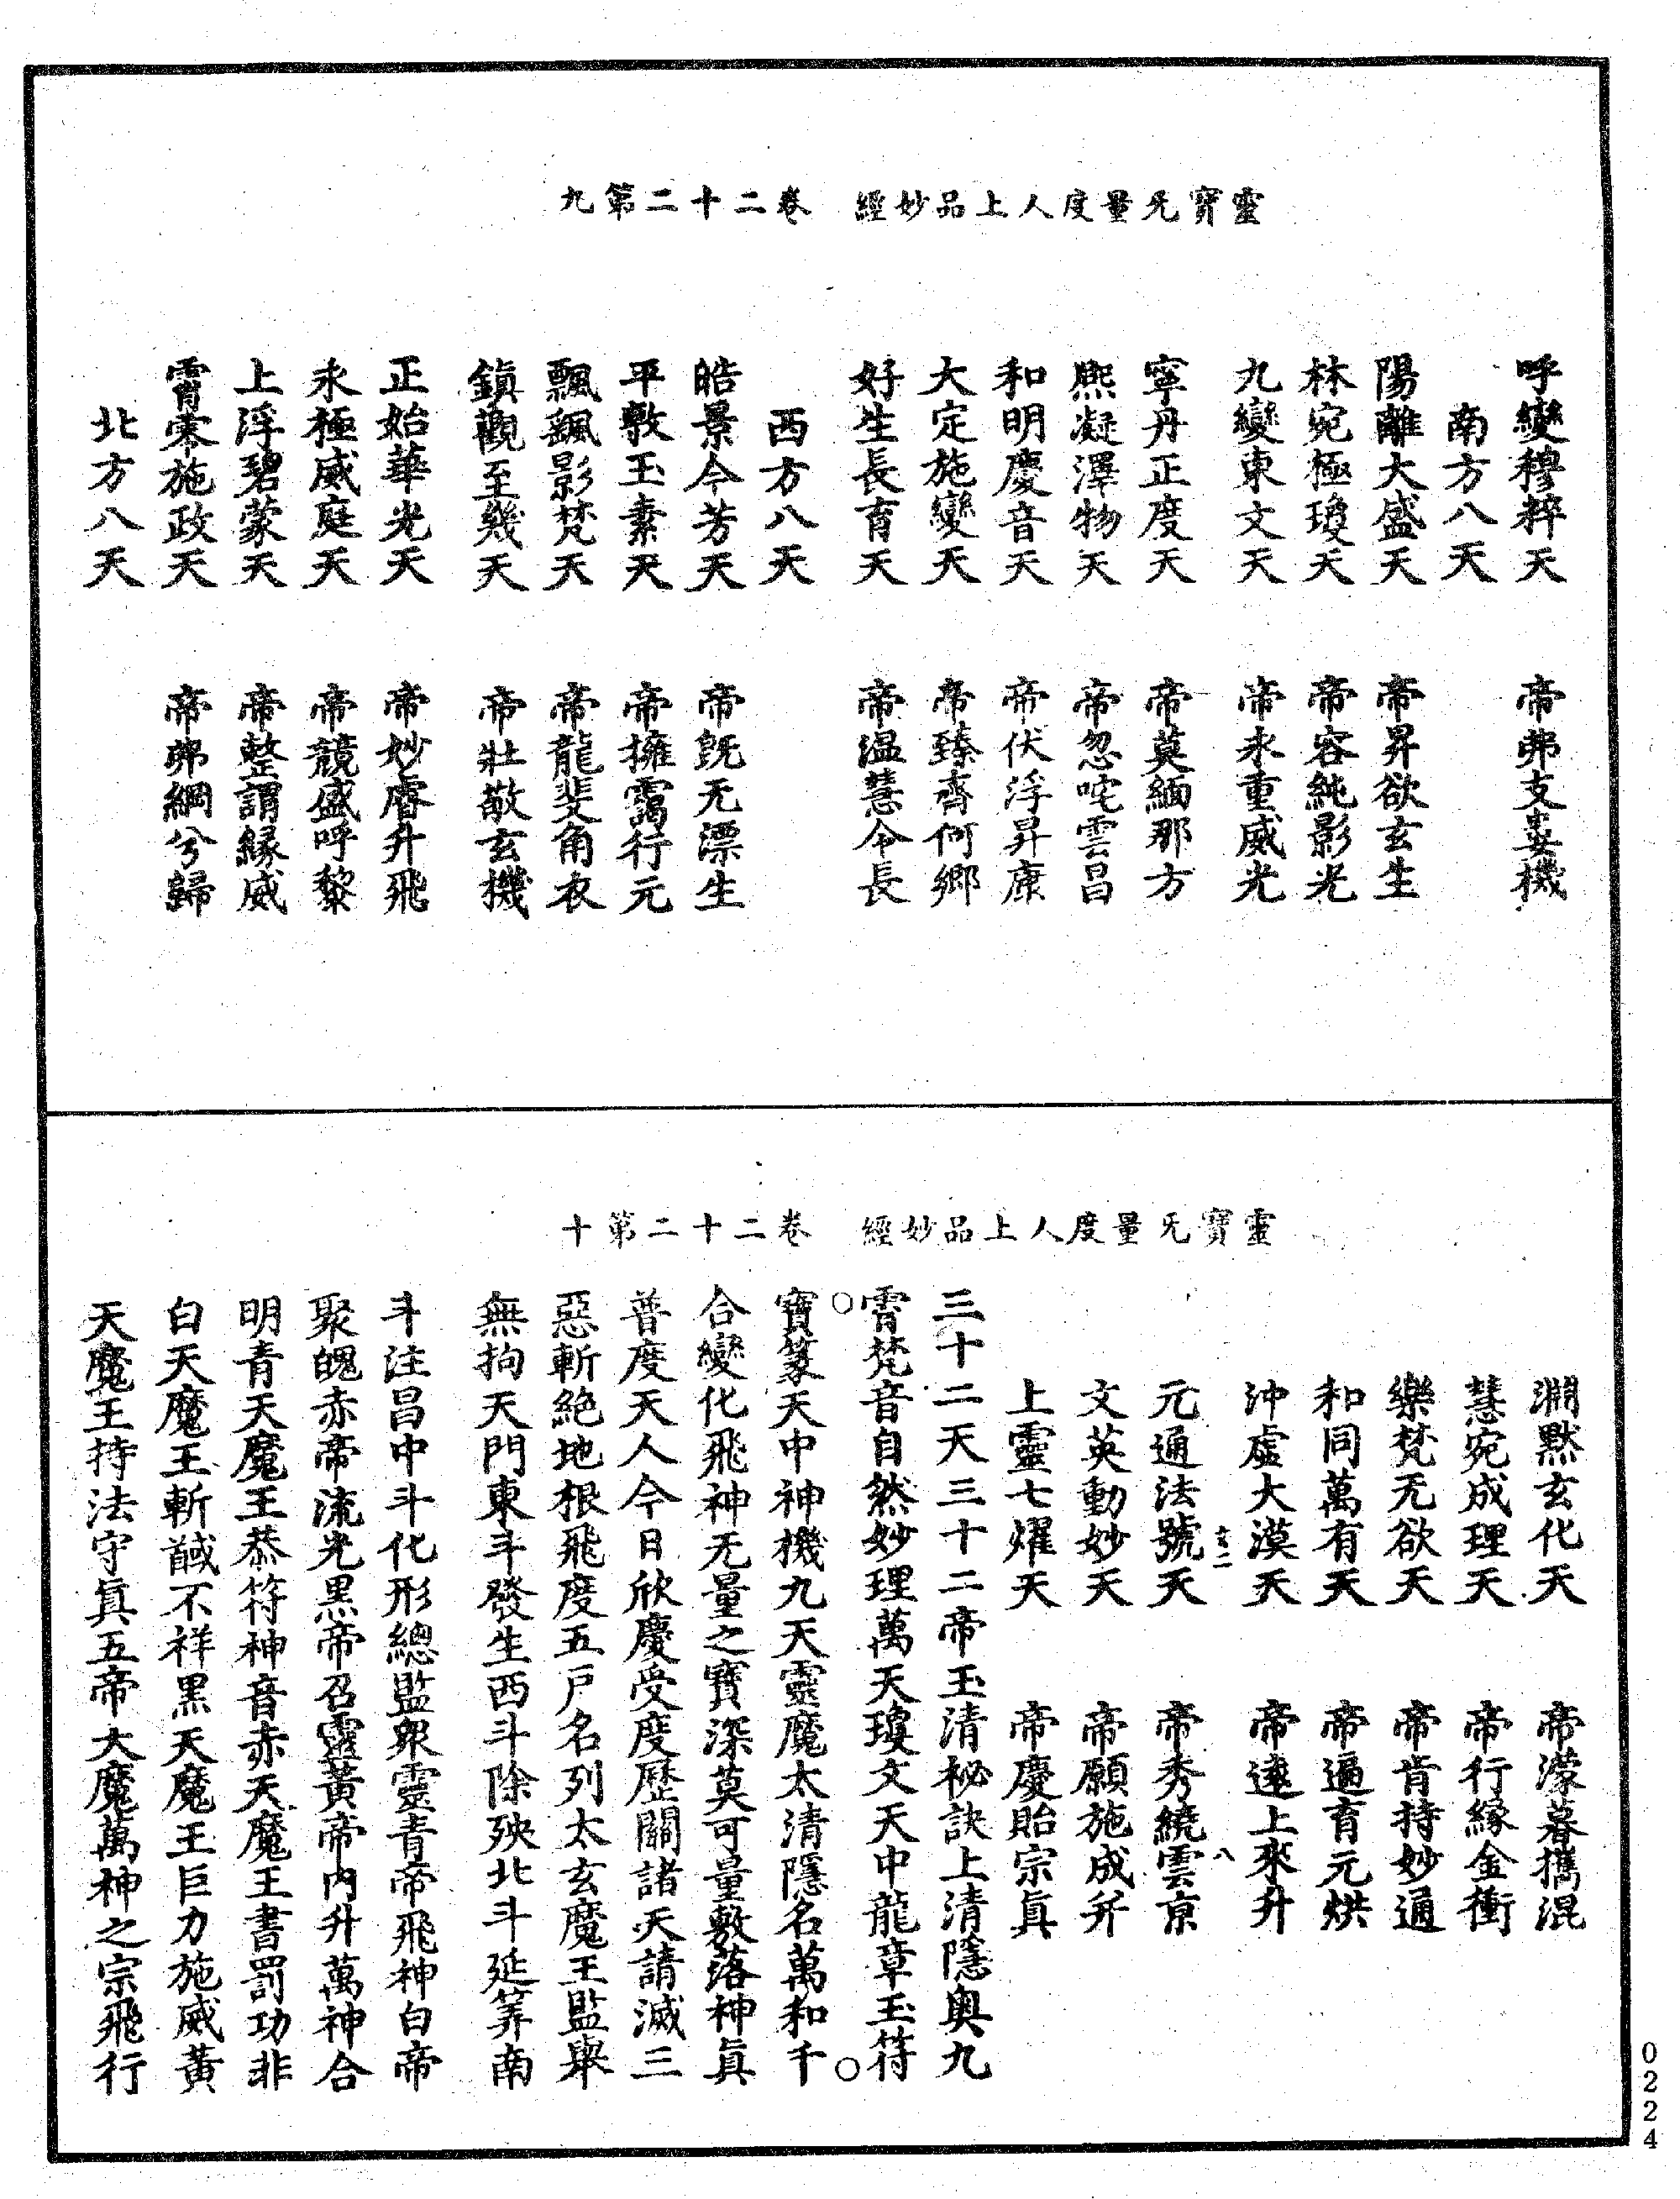 靈寶无量度人上品妙經　卷二十二第九
呼變穆粹天　帝弗支婁機
南方八天
陽離大盛天　帝昇欲玄生
林宛極瓊天　帝容純影光
九變東文天　帝永重威光
寧丹正度天　帝莫緬那方
熙凝澤物天　帝忽咤雲昌
和明慶音天　帝伏浮昇康
大定施變天　帝臻齊何鄉
好生長育天　帝溫慧令長
西方八天
皓景令芳天　帝旣无漂生
平敷玉素天　帝擁靄行元
飄飆影梵天　帝龍斐角衣
鎮觀至幾天　帝壯敬玄機
正始華光天　帝妙睿升飛
永極威庭天　帝競盛呼黎
上浮碧蒙天　帝整謂緣威
霄零施政天　帝弗綱兮歸
北方八天
靈寶无量度人上品妙經　卷二十二第十
淵黙玄化天　帝濛暮攜混
慧宛成理天　帝行緣金衝
樂梵无欲天　帝肯持妙通
和同萬有天　帝遍育元烘
沖虛大漠天　帝遠上來升
八
元通法號天　帝秀繞雲京
文英動妙天　帝願施成并
上靈七燿天　帝慶貽宗眞
三十二天三十二帝玉清祕訣上清隱奥九
霄梵音自然妙理萬天瓊文天中龍章玉符
寶篆天中神機九天靈魔太清隱名萬和千
合變化飛神无量之寶深莫可量敷落神眞
普度天人今日欣慶受度歷關諸天請滅三
惡斬絕地根飛度五戶名列太玄魔王監舉
無拘天門東斗發生西斗除殃北斗延筭南
斗注昌中斗化形總監衆靈青帝飛神白帝
聚魄赤帝流光黑帝召靈黃帝內升萬神合
明青天魔王恭符神音赤天魔王書罰功非
白天魔王斬馘不祥黑天魔王巨力施威黃
天魔王持法守眞五帝大魔萬神之宗飛行
0224